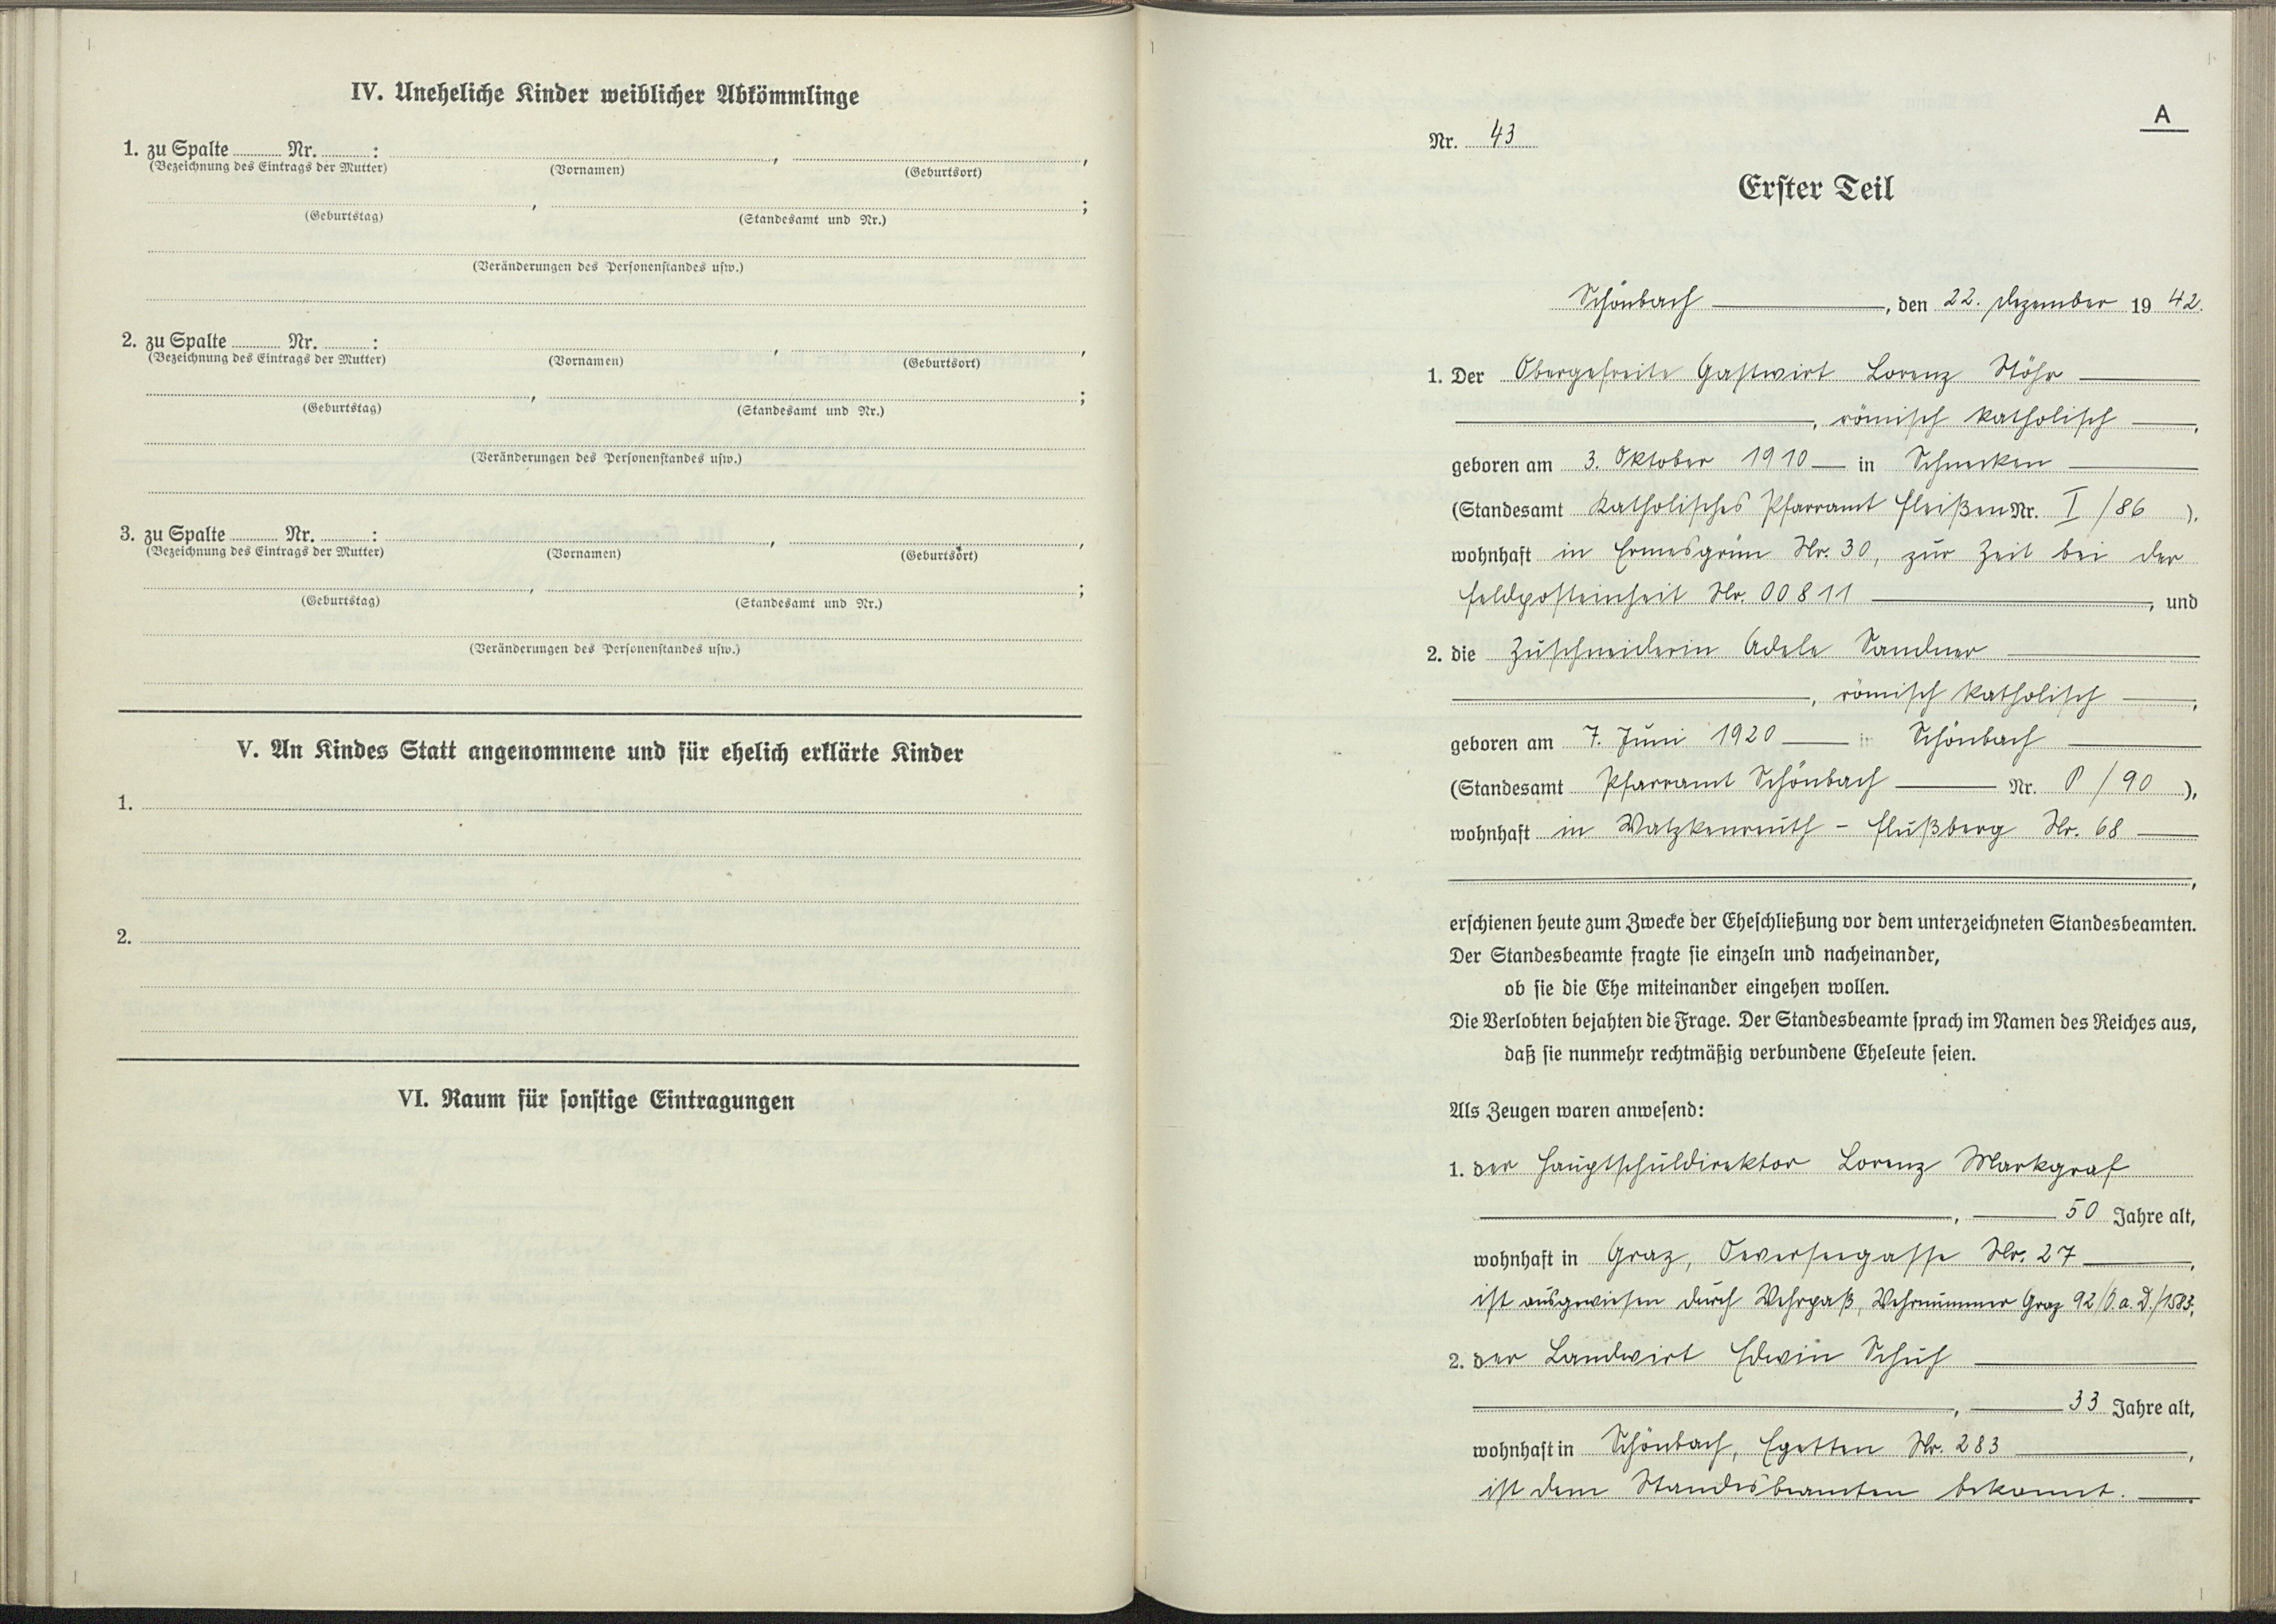 IV. Uneheliche Kinder weiblicher Abkömmlinge
1. zu Spalte ........ Nr. ........ : , ,
(Bezeichnung des Eintrags der Mutter) (Vornamen) (Geburtsort)
, ;
(Geburtstag) (Standesamt und Nr.)
(Veränderungen des Personenstandes usw.)
2. zu Spalte ........ Nr. ........ : , ,
(Bezeichnung des Eintrags der Mutter) (Vornamen) (Geburtsort)
, ;
(Geburtstag) (Standesamt und Nr.)
(Veränderungen des Personenstandes usw.)
3. zu Spalte ........ Nr. ........ : , ,
(Bezeichnung des Eintrags der Mutter) (Vornamen) (Geburtsort)
, ;
(Geburtstag) (Standesamt und Nr.)
(Veränderungen des Personenstandes usw.)
V. An Kindes Statt angenommene und für ehelich erklärte Kinder
1.
2.
VI. Raum für sonstige Eintragungen
A
Nr. 43
Erster Teil
Schönbach, den 22. Dezember 1942.
1. Der Obergefreite Gastwirt Lorenz Stöhr
, römisch katholisch,
geboren am 3. Oktober 1910 in Schnecken
(Standesamt Katholisches Pfarramt Fleißen Nr. I/86 ),
wohnhaft in Ermesgrün Nr. 30, zur Zeit bei der
Feldposteinheit Nr. 00811, und
2. die Zuschneiderin Adele Sandner
, römisch katholisch,
geboren am 7. Juni 1920 in Schönbach
(Standesamt Pfarramt Schönbach Nr. P/90 ),
wohnhaft in Watzkenreuth - Flußberg Nr. 68
,
erschienen heute zum Zwecke der Eheschließung vor dem unterzeichneten Standesbeamten.
Der Standesbeamte fragte sie einzeln und nacheinander,
ob sie die Ehe miteinander eingehen wollen.
Die Verlobten bejahten die Frage. Der Standesbeamte sprach im Namen des Reiches aus,
daß sie nunmehr rechtmäßig verbundene Eheleute seien.
Als Zeugen waren anwesend:
1. der Hauptschuldirektor Lorenz Markgraf
, 50 Jahre alt,
wohnhaft in Graz, Oeverseegasse Nr. 27,
ist ausgewiesen durch Wehrpaß, Wehrnummer Graz 92/O.a.D./1583;
2. der Landwirt Edwin Schuh
, 33 Jahre alt,
wohnhaft in Schönbach, Egetten Nr. 283,
ist dem Standesbeamten bekannt.